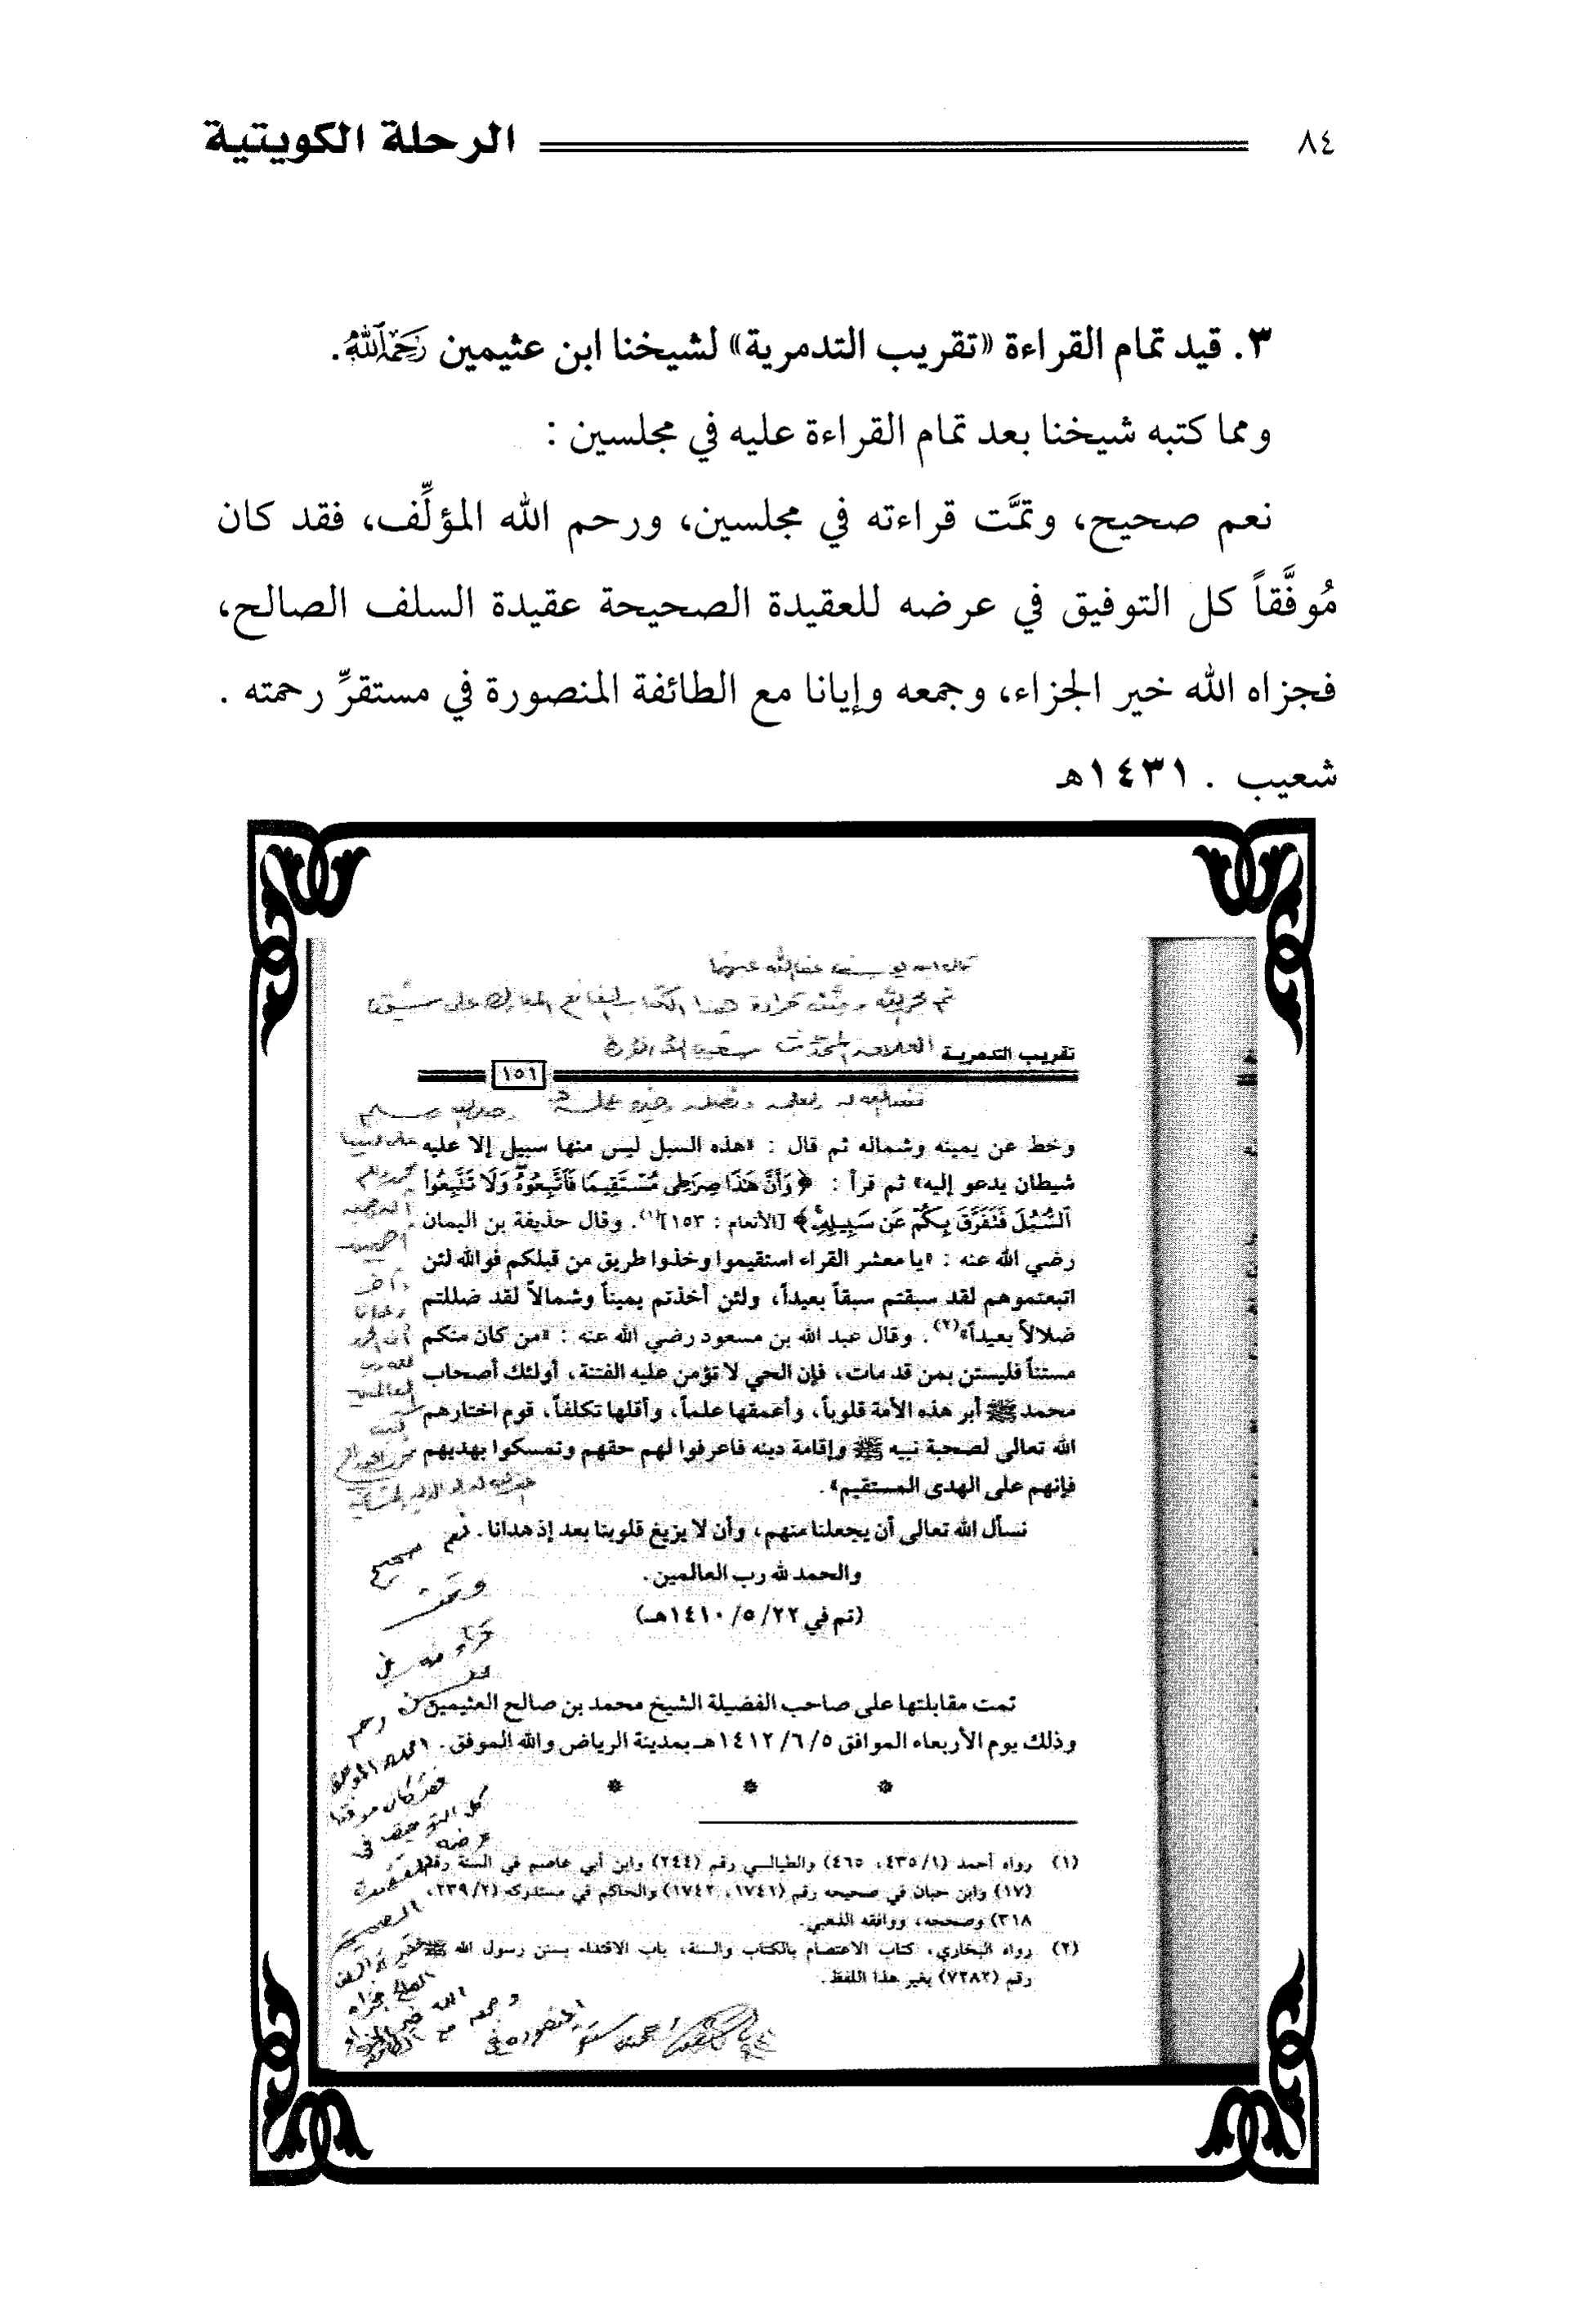 ٨٤ الرحلة الكويتية
٣. قيد تمام القراءة «تقريب التدمرية» لشيخنا ابن عثيمين رَحِمَهُ اللَّهُ.
ومما كتبه شيخنا بعد تمام القراءة عليه في مجلسين :
نعم صحيح، وتمَّت قراءته في مجلسين، ورحم الله المؤلِّف، فقد كان
مُوفَّقاً كل التوفيق في عرضه للعقيدة الصحيحة عقيدة السلف الصالح،
فجزاه الله خير الجزاء، وجمعه وإيانا مع الطائفة المنصورة في مستقرِّ رحمته .
شعيب . ١٤٣١هـ
العلامة المحدث
تقريب التدمرية
١٥٦
وخط عن يمينه وشماله ثم قال : «هذه السبل ليس منها سبيل إلا عليه
شيطان يدعو إليه» ثم قرأ : ﴿وَأَنَّ هَذَا صِرَاطِي مُسْتَقِيمًا فَاتَّبِعُوهُ وَلَا تَتَّبِعُوا
السُّبُلَ فَتَفَرَّقَ بِكُمْ عَن سَبِيلِهِ﴾ [الأنعام : ١٥٣](١). وقال حذيفة بن اليمان
رضي الله عنه : «يا معشر القراء استقيموا وخذوا طريق من قبلكم فوالله لئن
اتبعتموهم لقد سبقتم سبقاً بعيداً، ولئن أخذتم يميناً وشمالاً لقد ضللتم
ضلالاً بعيداً»(٢). وقال عبد الله بن مسعود رضي الله عنه : «من كان منكم
مستناً فليستن بمن قد مات، فإن الحي لا تؤمن عليه الفتنة، أولئك أصحاب
محمد ﷺ أبر هذه الأمة قلوباً، وأعمقها علماً، وأقلها تكلفاً، قوم اختارهم
الله تعالى لصحبة نبيه ﷺ وإقامة دينه فاعرفوا لهم حقهم وتمسكوا بهديهم
فإنهم على الهدى المستقيم».
نسأل الله تعالى أن يجعلنا منهم، وأن لا يزيغ قلوبنا بعد إذ هدانا.
والحمد لله رب العالمين.
(تم في ٢٢/ ٥/ ١٤١٠هـ)
تمت مقابلتها على صاحب الفضيلة الشيخ محمد بن صالح العثيمين
وذلك يوم الأربعاء الموافق ٥/ ٦/ ١٤١٢هـ بمدينة الرياض والله الموفق.
(١) رواه أحمد (١/ ٤٣٥، ٤٦٥) والطيالسي رقم (٢٤٤) وابن أبي عاصم في السنة رقم
(١٧) وابن حبان في صحيحه رقم (١٧٤١، ١٧٤٢) والحاكم في مستدركه (٢/ ٢٣٩،
٣١٨) وصححه، ووافقه الذهبي.
(٢) رواه البخاري، كتاب الاعتصام بالكتاب والسنة، باب الاقتداء بسنن رسول الله ﷺ
رقم (٧٢٨٢) بغير هذا اللفظ.
نعم
صحيح
وتمت
قراءته في
مجلسين
ورحم
الله المؤلف
فقد كان موفقا
كل التوفيق في
عرضه